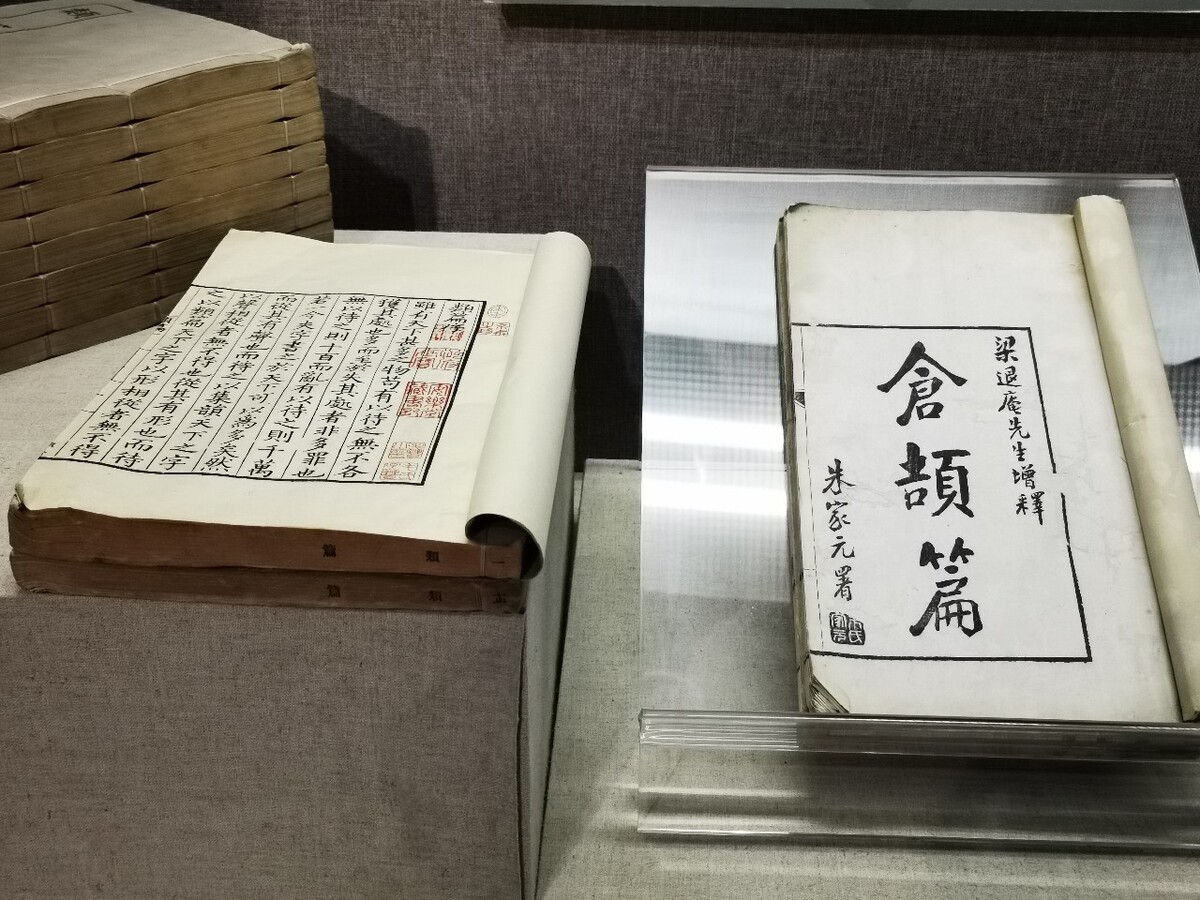 類篇序
雖有天下甚多之物苟有以待之無不各
獲其處也多而至於失其處者非多罪也
無以待之則十百而亂有以待之則千萬
若一今夫字書之於天下可以為多矣然
而從其有聲也而待之以集韻天下之字
以聲相從者無不得也從其有形也而待
之以類篇天下之字以形相從者無不得
類篇 一
類篇
梁退庵先生增釋
倉頡篇
朱家元署